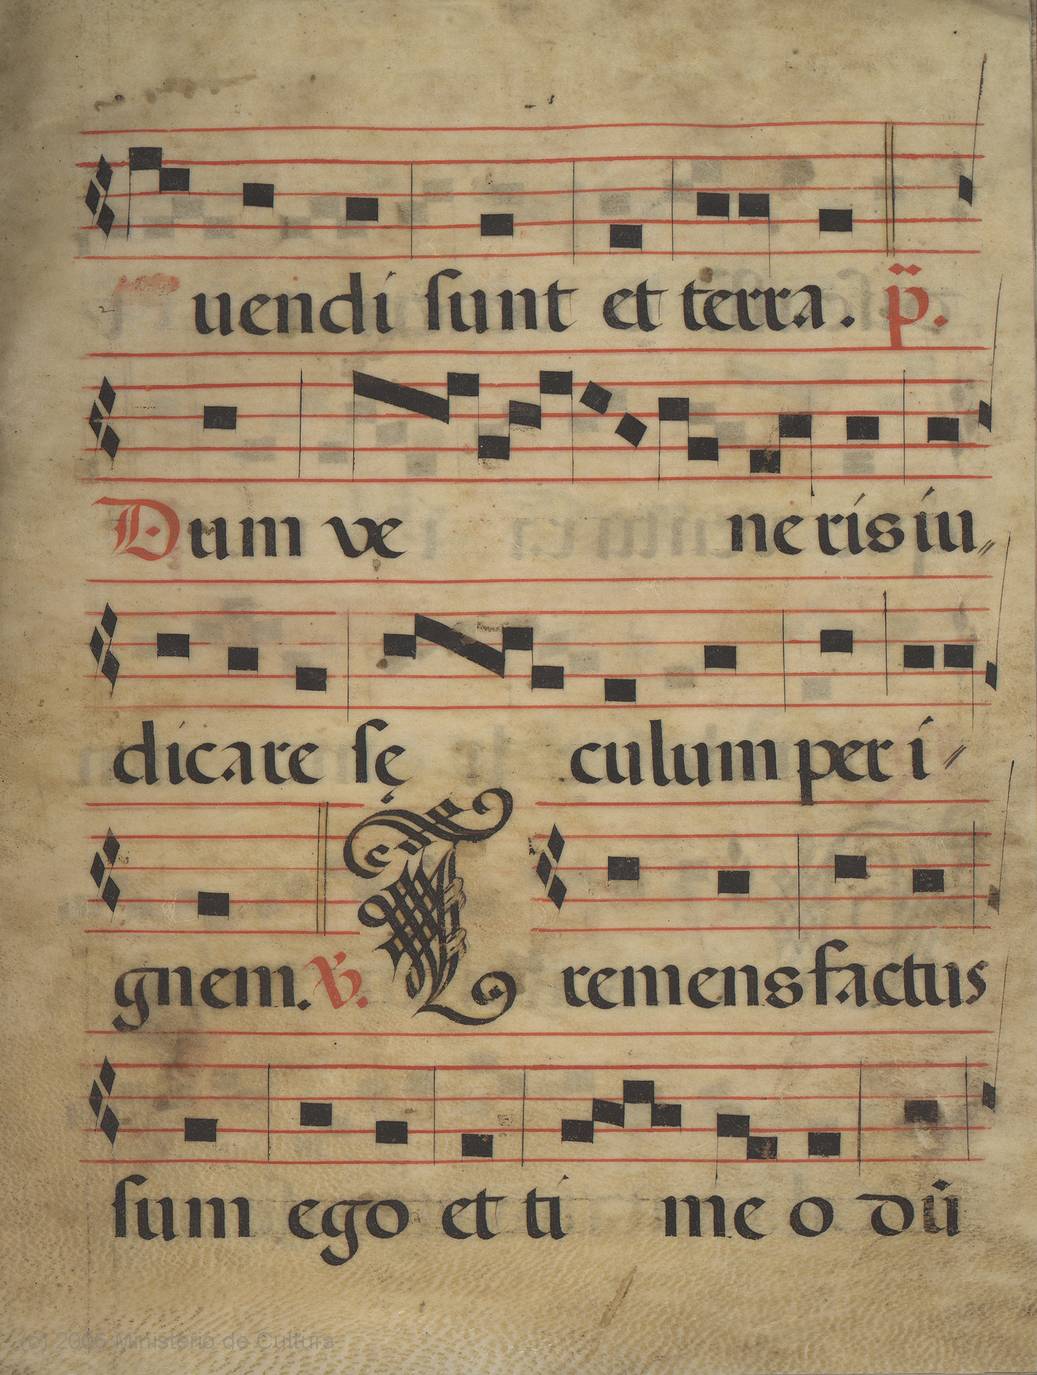 uendi sunt et terra. p̈.
Dum ve neris iu
dicare sę culum per i
gnem. V. Tremens factus
sum ego et ti me o dū
(c) 2006 Ministerio de Cultura